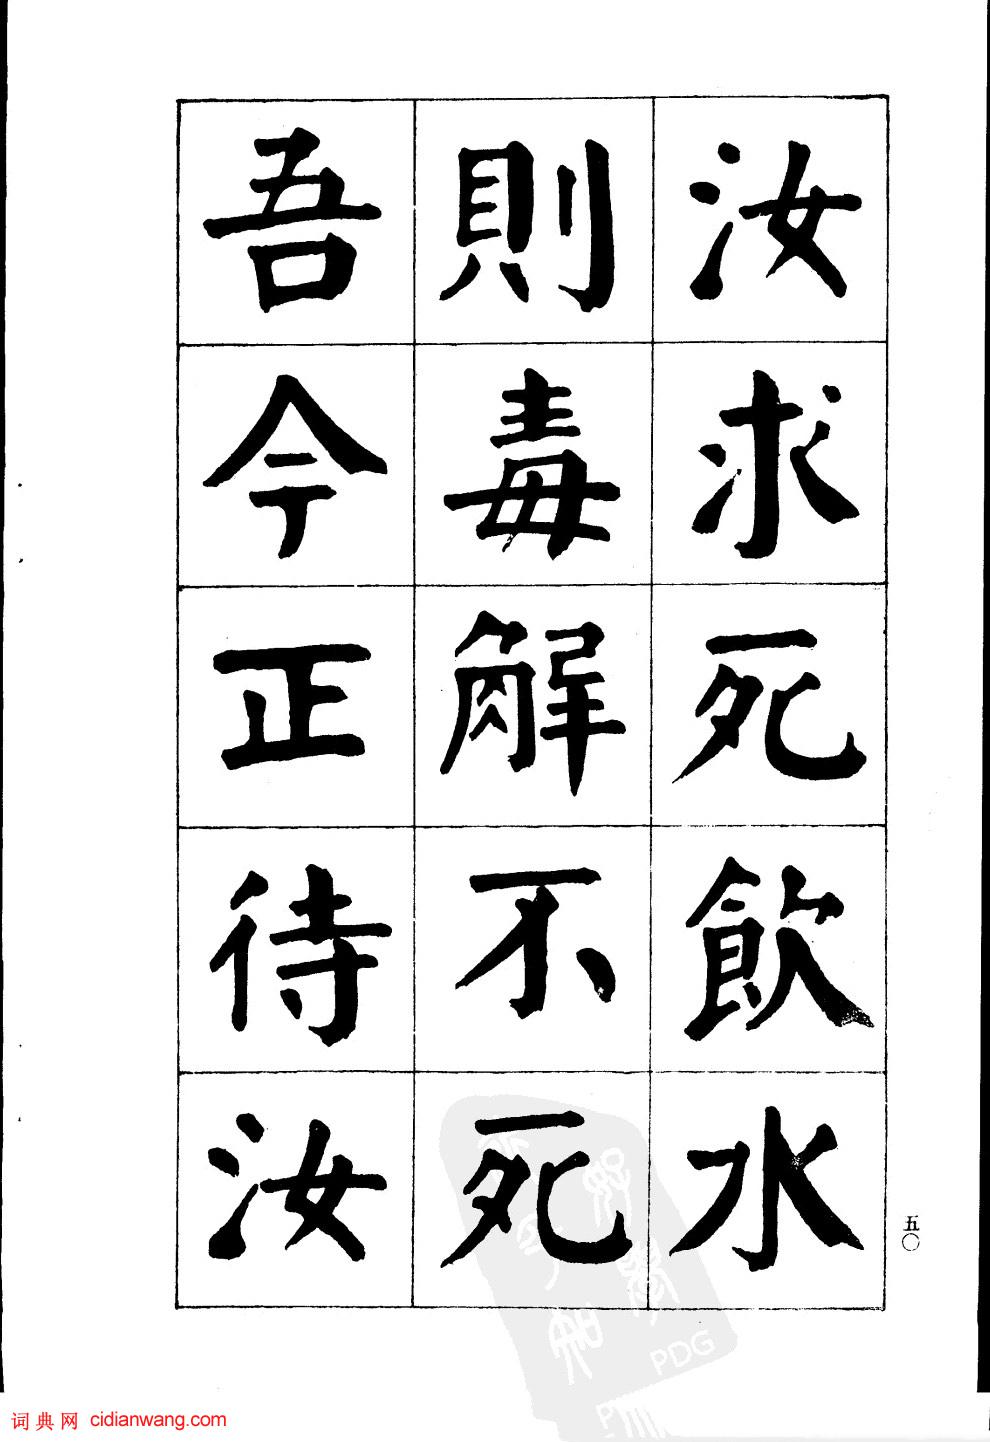 汝求死飲水
則毒解不死
吾今正待汝
五〇
PDG
词典网 cidianwang.com